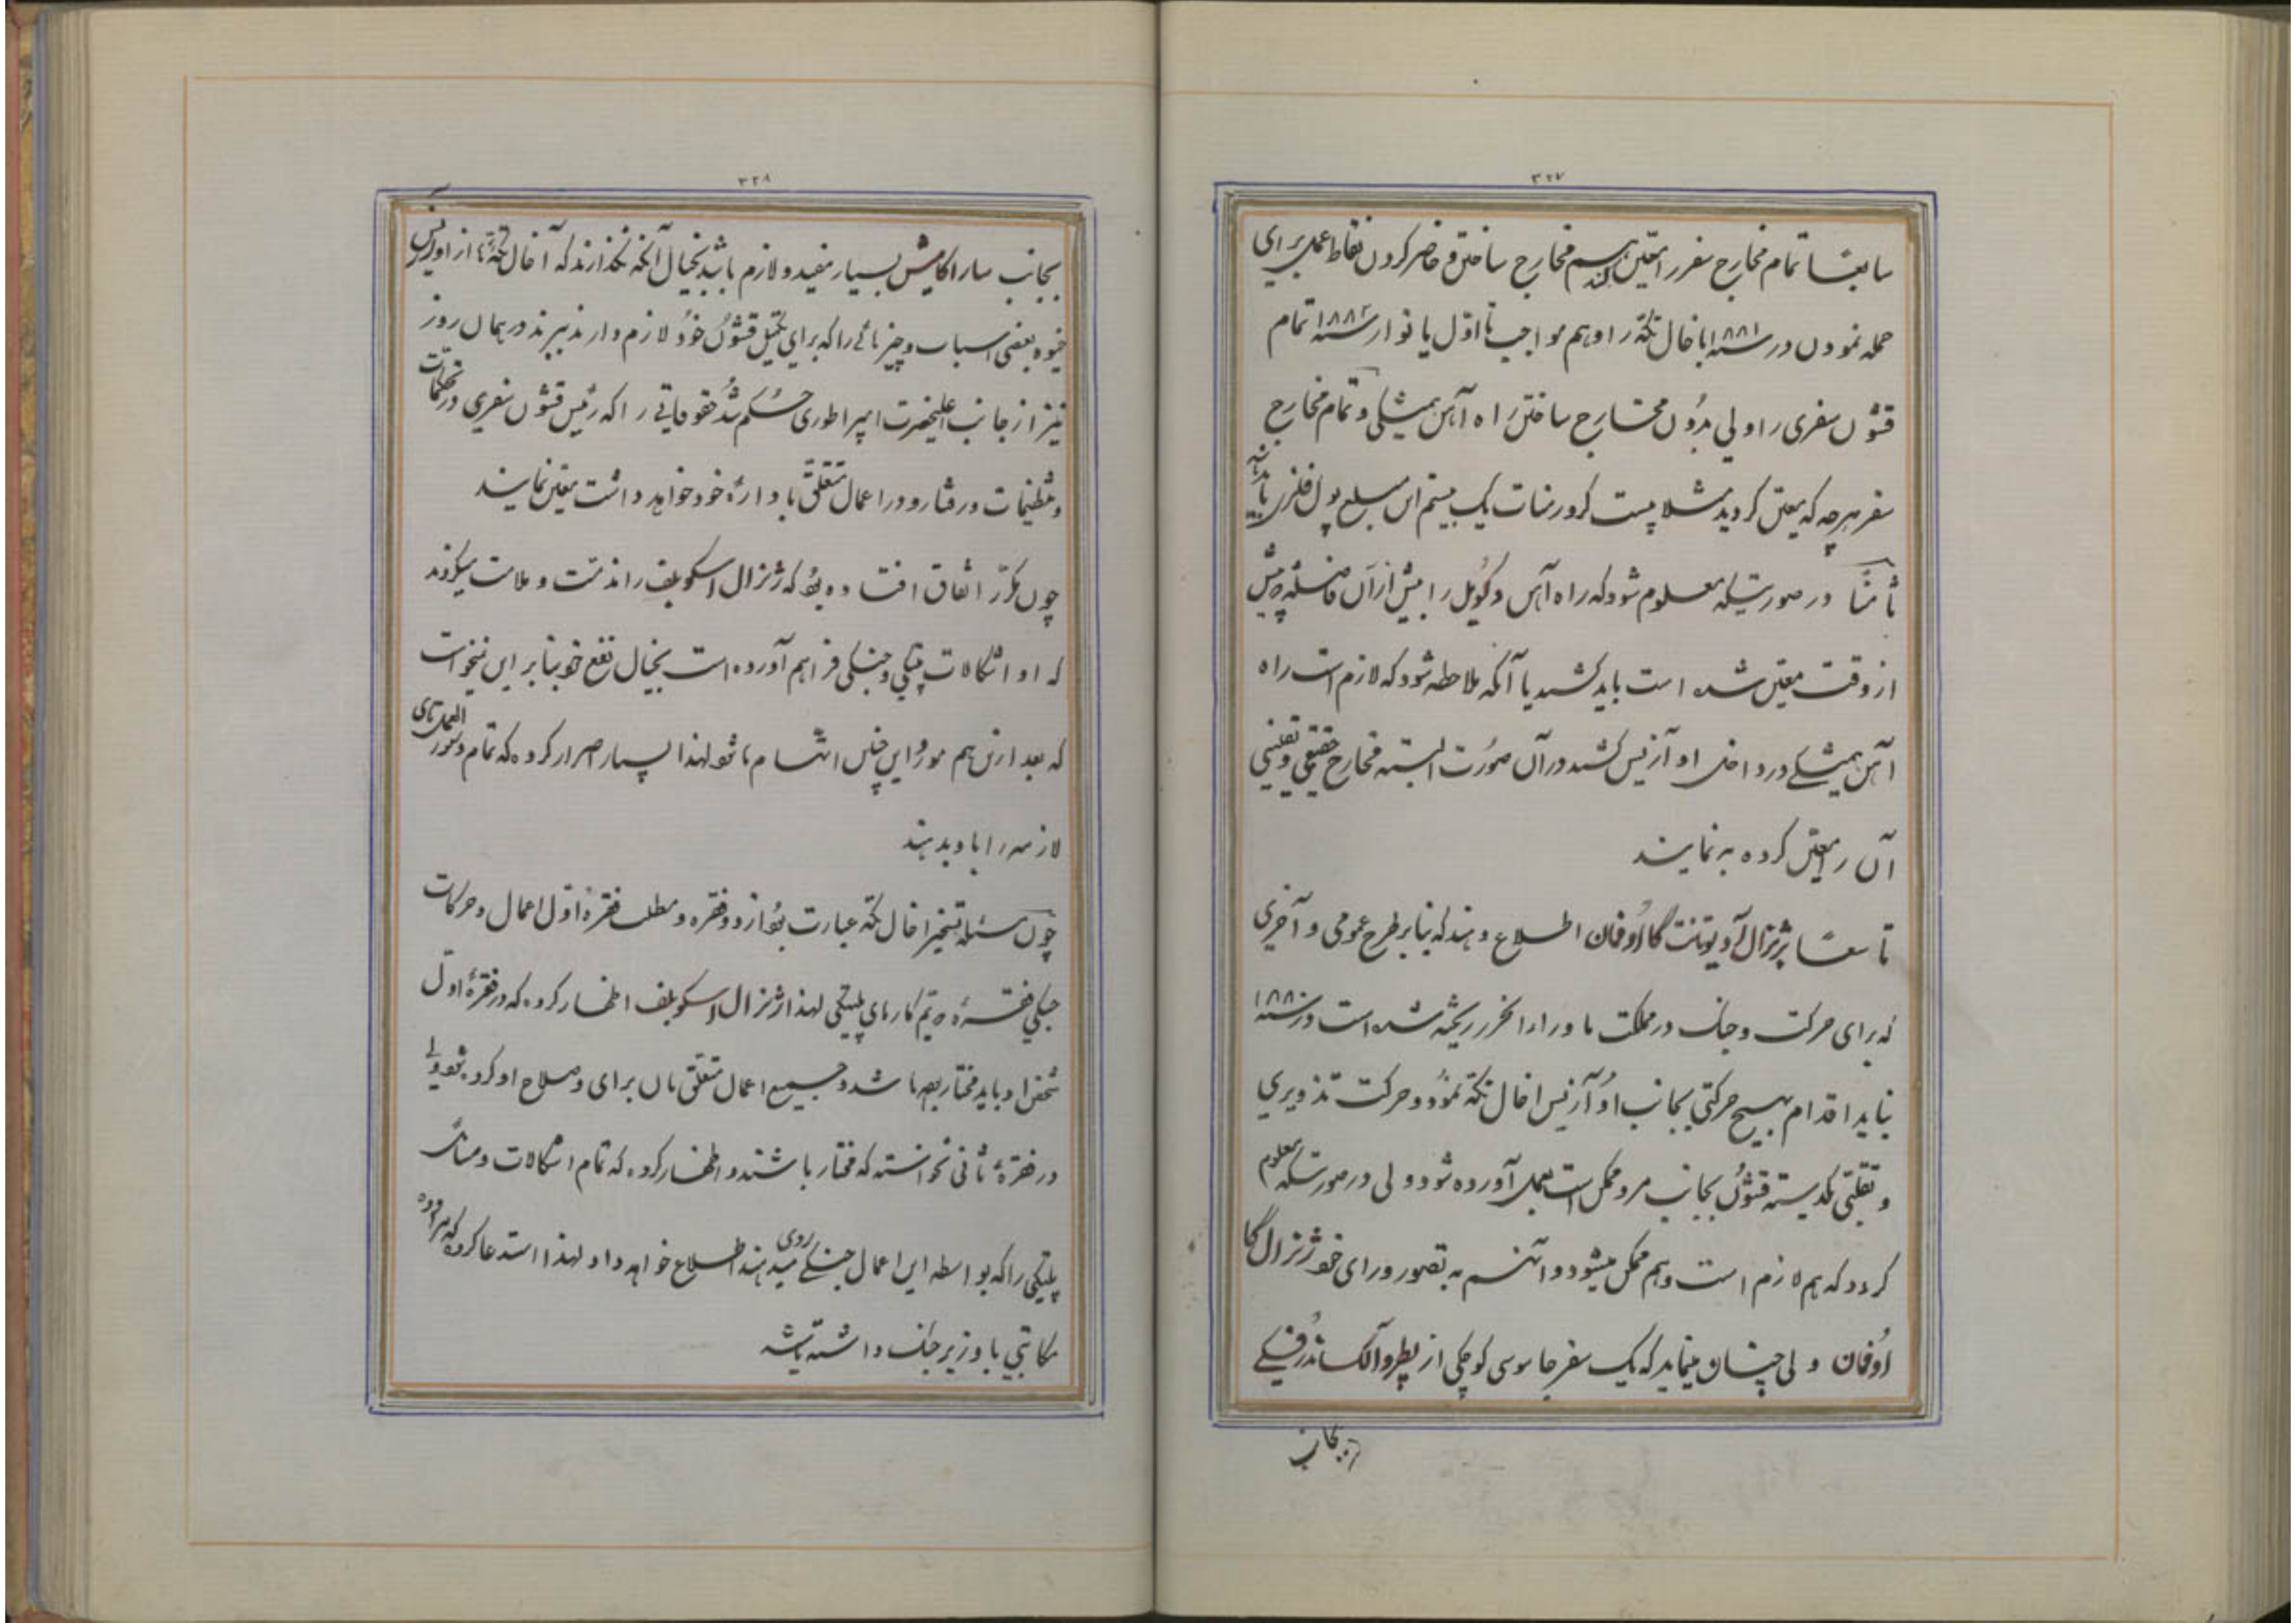 ۳۲۷
سابعًا تمام مخارج سفر را معین کنند هم مخارج ساختن و حاضر کردن نقاط عمل برای
حمله نمودن در سنه ۱۸۸۱ با خال تکه را و هم مواجب تا اول یانوار سنه ۱۸۸۲ تمام
قشون سفری را ولی بدون مخارج ساختن راه آهن همیشگی و تمام مخارج
سفر هرچه که معین گردید مثلا بیست کرور منات یک بیستم این مبلغ پول فلزی باید
ثامنًا در صورتیکه معلوم شود که راه آهن دکویل را بیش از آن فاصله پیش
از وقت معین شده است باید کشید یا آنکه ملاحظه شود که لازم است راه
آهن همیشگی در داخل او آزیس کشند در آن صورت البته مخارج حقیقی و تقینی
آن را معین کرده به نمایند
تاسعًا بژنرال آدیوتنت گااوفمان اطلاع دهند که بنا بر طرح عمومی و آخری
که برای حرکت و جنگ در مملکت ماوراء الخزر ریخته شده است در سنه ۱۸۸۰
نباید اقدام بهیچ حرکتی بجانب اوآزیس اخال تکه نمود و حرکت تذویری
و تقلبی یکدسته قشون بجانب مرو ممکن است بعمل آورده شود ولی در صورتیکه معلوم
کردد که هم لازم است و هم ممکن میشود و آنهم به تصور و رای خود ژنرال گا
اوفمان ولی چنان مینماید که یک سفر جاسوسی کوچکی از پطروآلکساندرفسکی
بجانب
۳۲۸
بجانب ساراکامیش بسیار مفید و لازم باشد بخیال آنکه نگذارند که آخال تکه‌ها از اوآزیس
خیوه بعضی اسباب و چیزهائی را که برای تکمیل قشون خود لازم دارند ببرند در همان روز
نیز از جانب اعلیحضرت امپراطوری حکم شد حقوقاتی را که رئیس قشون سفری در تحکمات
و تنظیمات و رفتار و در اعمال متعلق با داره خود خواهد داشت معین نمایند
چون مکرر اتفاق افتاده بود که ژنرال اسکوبلف را مذمت و ملامت میکردند
که او اشکالات پلتیکی و جنگی فراهم آورده است بخیال نفع خود بنابر این نمیخواست
که بعد ازین هم مورد این چنین اتهام ما شود لهذا بسیار اصرار کرده که تمام دستور العمل‌های
لازمه را باو بدهند
چون مسئله تسخیر اخال تکه عبارت بود از دو فقره و مطلب فقره اول اعمال و حرکات
جنگی فقره دیم کارهای پلتیکی لهذا ژنرال اسکوبلف اظهار کرده که در فقره اول
شخص او باید مختار بوده باشد و جمیع اعمال متعلق بآن برای و صلاح او کرده شود ولی
در فقره ثانی نخواسته که مختار باشند و اظهار کرده که تمام اشکالات و مسائل
پلتیکی را که بواسطه این اعمال جنگی روی میدهند اطلاع خواهد داد لهذا استدعا کرده که
مکاتبتی با وزیر جنگ داشته باشد